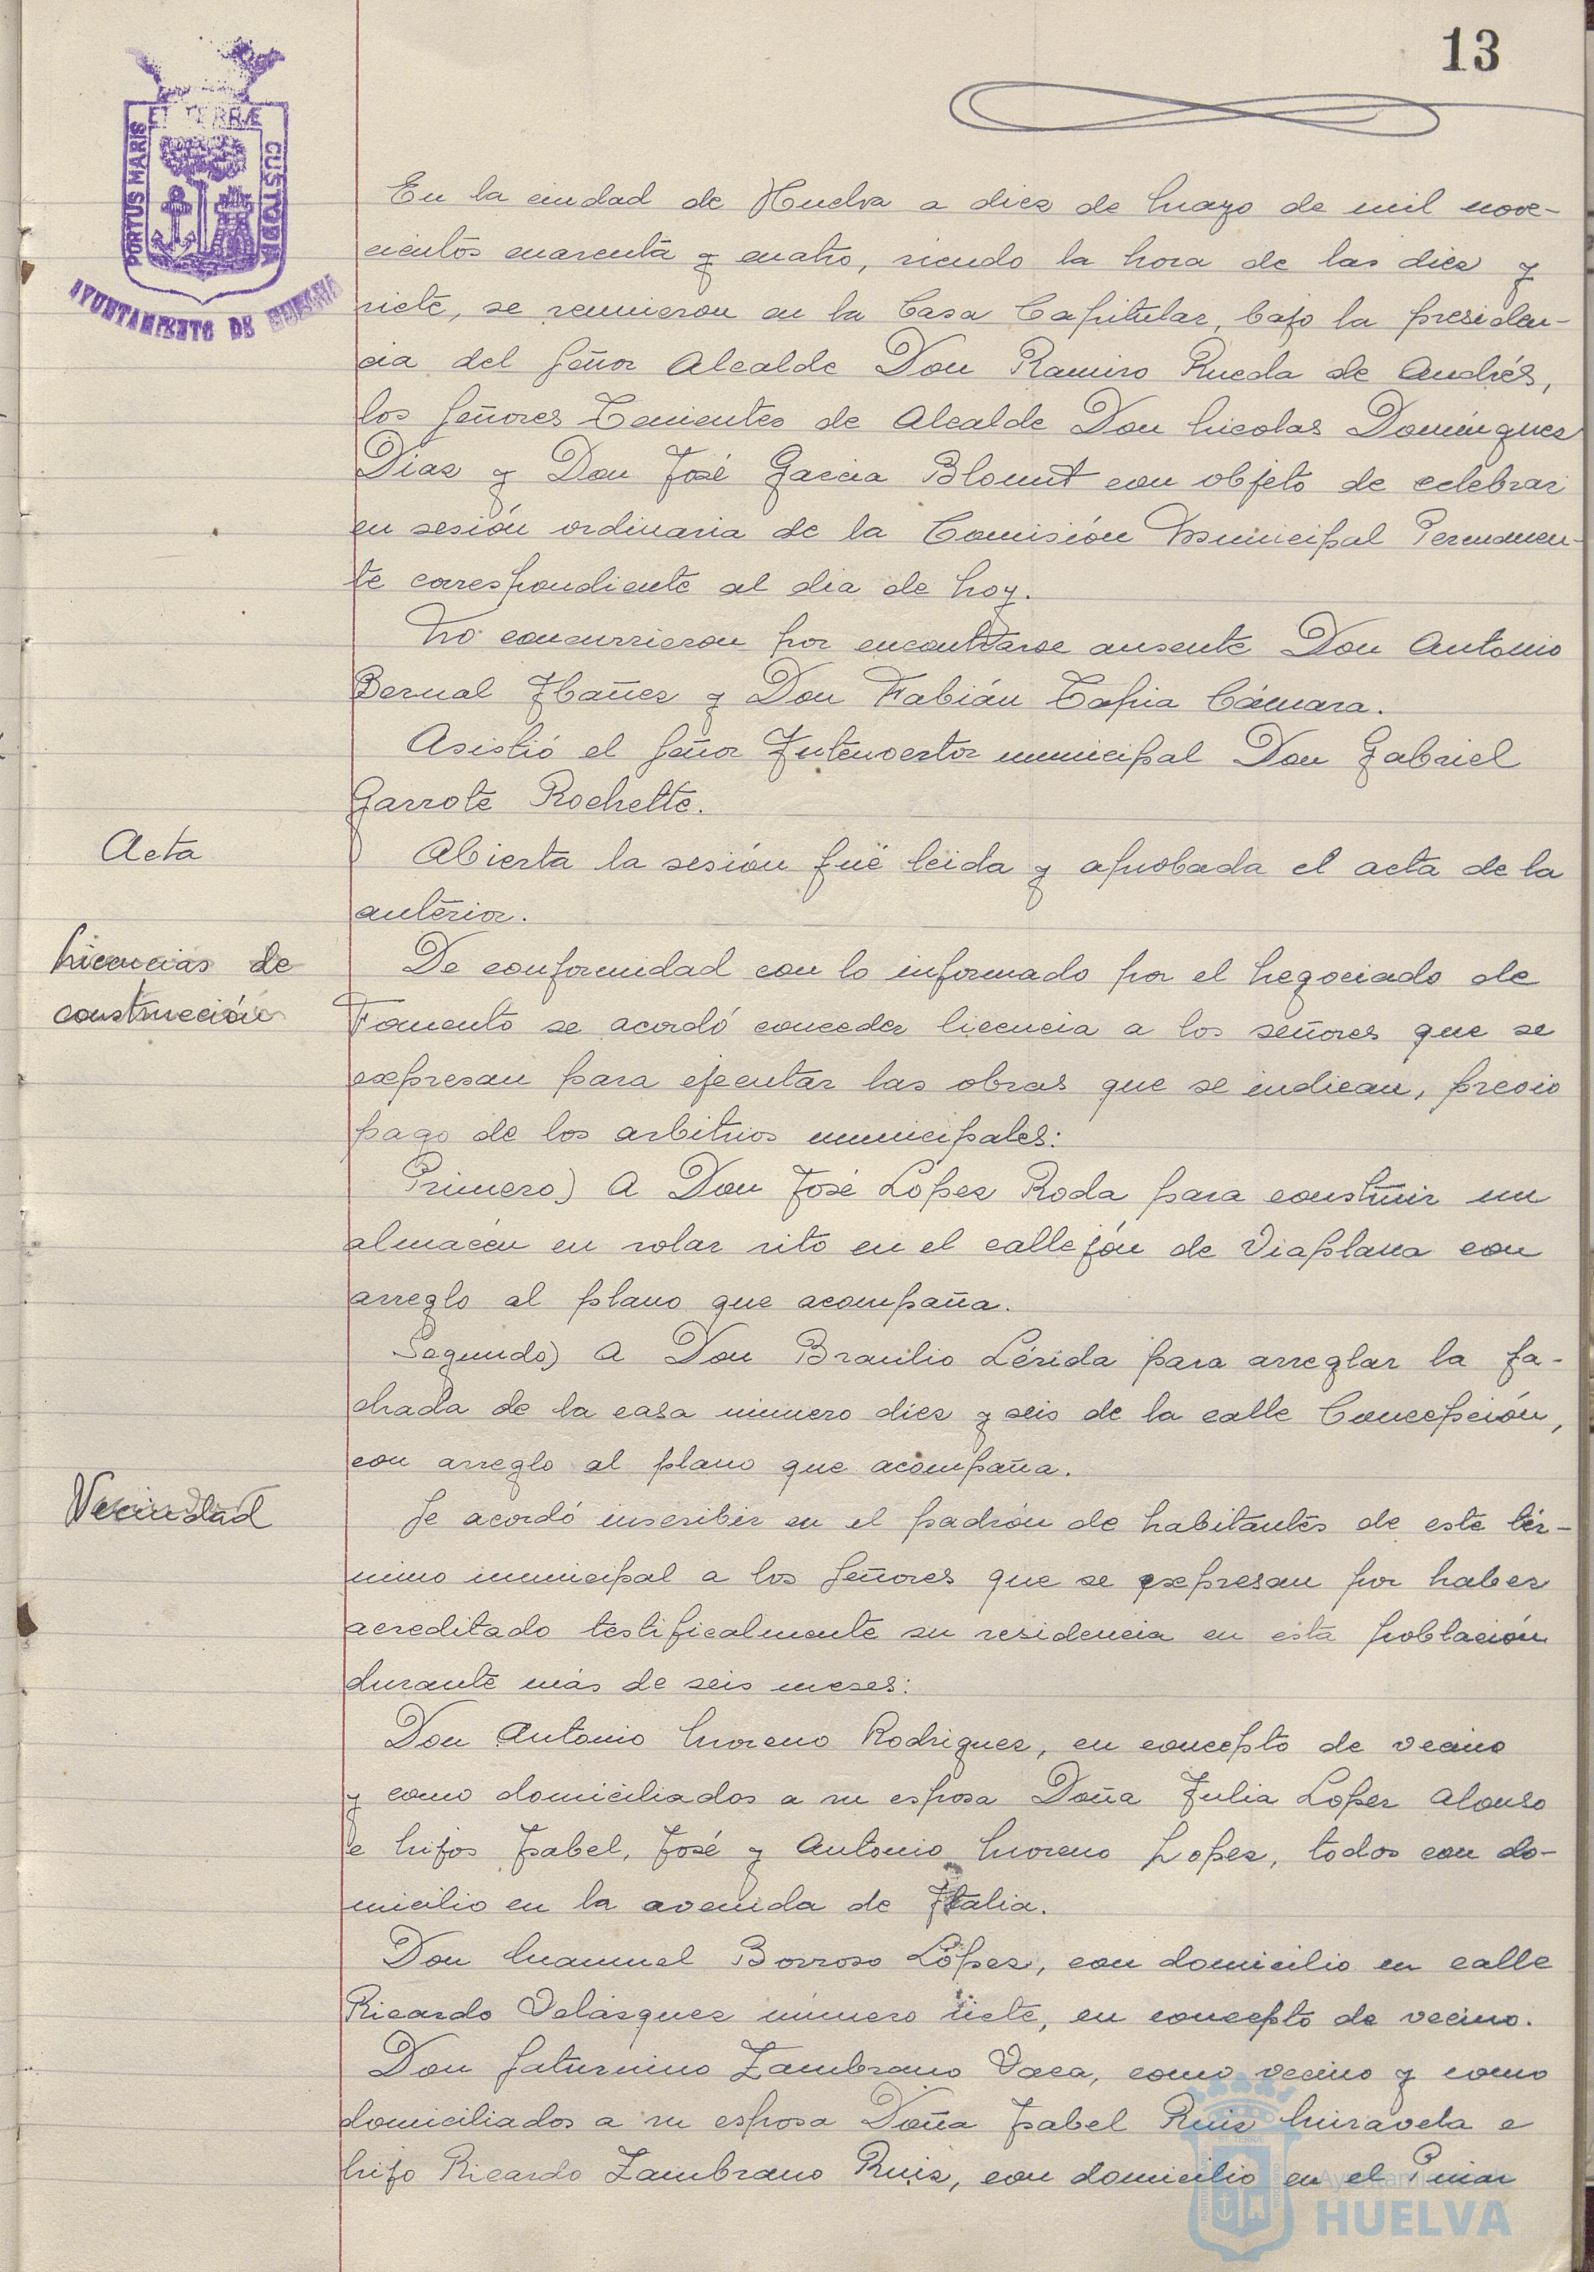 13
ET TERRÆ
PORTUS MARIS
CUSTODIA
AYUNTAMIENTO DE HUELVA
En la ciudad de Huelva a diez de Mayo de mil nove-
cientos cuarenta y cuatro, siendo la hora de las diez y
siete, se reunieron en la Casa Capitular, bajo la presiden-
cia del Señor Alcalde Don Ramiro Rueda de Andrés,
los Señores Tenientes de Alcalde Don Nicolas Domínguez
Díaz y Don José Garcia Blount con objeto de celebrar
en sesión ordinaria de la Comisión Municipal Permanen-
te correspondiente al dia de hoy.
No concurrieron por encontrarse ausente Don Antonio
Bernal Ibañez y Don Fabián Tapia Cámara.
Asistió el Señor Interventor municipal Don Gabriel
Garrote Rochette.
Acta
Abierta la sesión fué leida y aprobada el acta de la
anterior.
Licencias de
construcción
De conformidad con lo informado por el Negociado de
Fomento se acordó conceder licencia a los señores que se
expresan para ejecutar las obras que se indican, previo
pago de los arbitrios municipales:
Primero) A Don José López Roda para construir un
almacén en solar sito en el callejón de Viaplana con
arreglo al plano que acompaña.
Segundo) A Don Braulio Lérida para arreglar la fa-
chada de la casa número diez y seis de la calle Concepción,
con arreglo al plano que acompaña.
Vecindad
Se acordó inscribir en el padrón de habitantes de este tér-
mino municipal a los Señores que se expresan por haber
acreditado testificalmente su residencia en esta población
durante más de seis meses:
Don Antonio Moreno Rodriguez, en concepto de vecino
y como domiciliados a su esposa Doña Julia Lopez Alonso
e hijos Isabel, José y Antonio Moreno Lopez, todos con do-
micilio en la avenida de Italia.
Don Manuel Borroso López, con domicilio en calle
Ricardo Velázquez número siete, en concepto de vecino.
Don Saturnino Zambrano Vaca, como vecino y como
domiciliados a su esposa Doña Isabel Ruiz Miravela e
hijo Ricardo Zambrano Ruiz, con domicilio en el Pinar
Ayuntamiento de
HUELVA